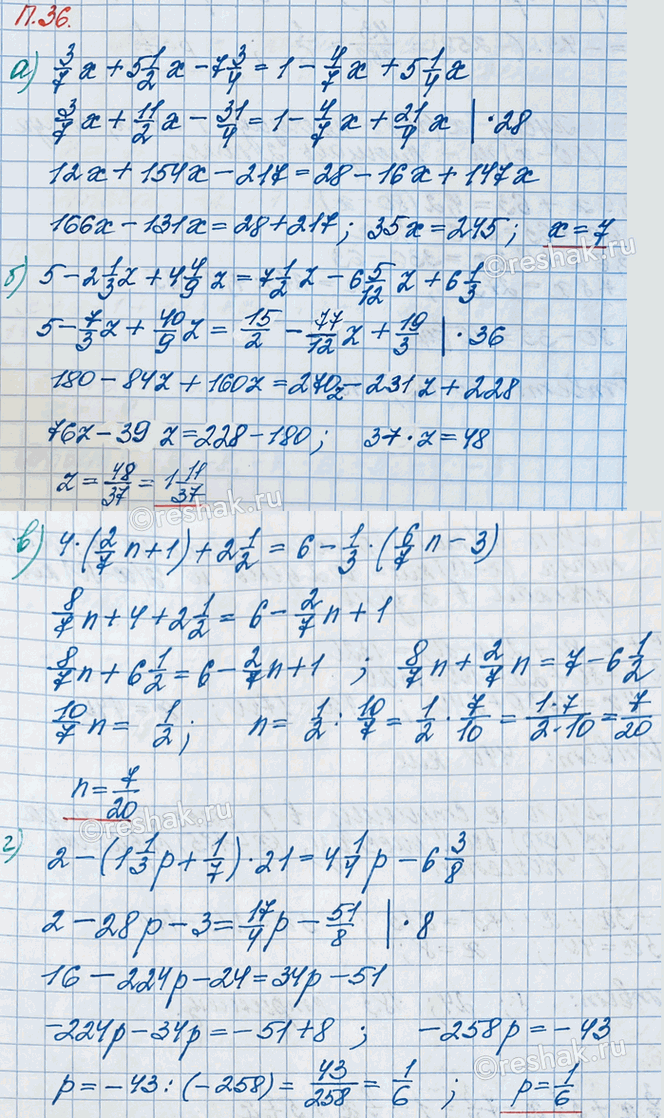 П.36.
а) 3/7 x + 5 1/2 x - 7 3/4 = 1 - 4/7 x + 5 1/4 x
3/7 x + 11/2 x - 31/4 = 1 - 4/7 x + 21/4 x | · 28
12x + 154x - 217 = 28 - 16x + 147x
166x - 131x = 28 + 217; 35x = 245; x = 7
б) 5 - 2 1/3 z + 4 4/9 z = 7 1/2 z - 6 5/12 z + 6 1/3
5 - 7/3 z + 40/9 z = 15/2 - 77/12 z + 19/3 | · 36
180 - 84z + 160z = 270z - 231z + 228
76z - 39 z = 228 - 180; 37 · z = 48
z = 48/37 = 1 11/37
в) 4 · (2/7 n + 1) + 2 1/2 = 6 - 1/3 · (6/7 n - 3)
8/7 n + 4 + 2 1/2 = 6 - 2/7 n + 1
8/7 n + 6 1/2 = 6 - 2/7 n + 1 ; 8/7 n + 2/7 n = 7 - 6 1/2
10/7 n = 1/2; n = 1/2 : 10/7 = 1/2 · 7/10 = 1·7/2·10 = 7/20
n = 7/20
г) 2 - (1 1/3 p + 1/7) · 21 = 4 1/4 p - 6 3/8
2 - 28p - 3 = 17/4 p - 51/8 | · 8
16 - 224p - 24 = 34p - 51
-224p - 34p = -51 + 8 ; -258p = -43
p = -43 : (-258) = 43/258 = 1/6 ; p = 1/6
©reshak.ru
©reshak.ru
©reshak.ru
©reshak.ru